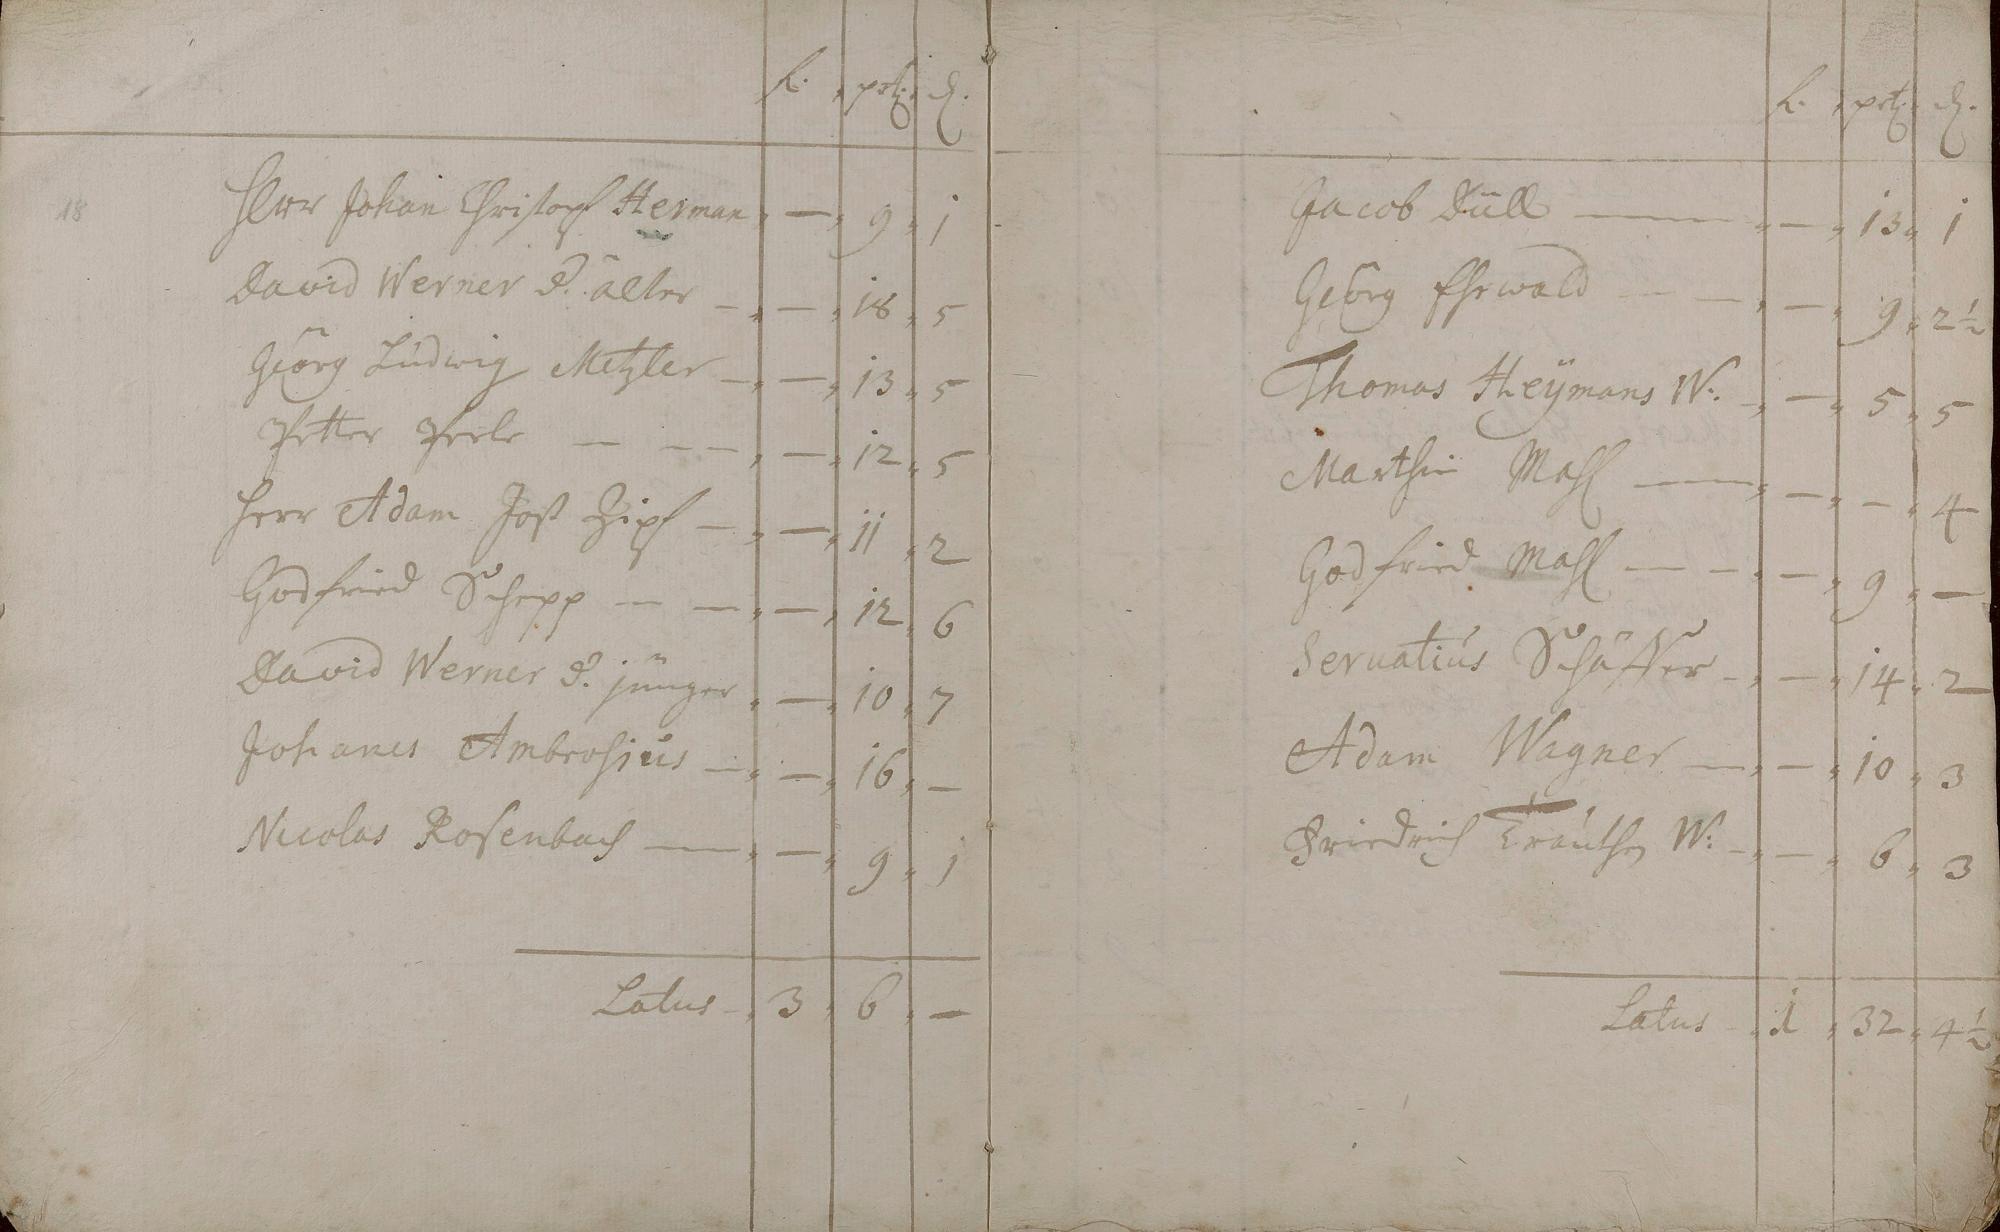 fl. prtz. d.
18
Herr Johan Christoph Herman — 9 1
David Werner d. älter — — 18 5
Georg Ludwig Metzler — — 13 5
Petter Perle — — — — 12 5
Herr Adam Jost Zipf — — 11 2
Godfried Schepp — — — 12 6
David Werner d. jünger — 10 7
Johanes Ambrosius — — 16 —
Nicolas Rosenbach — — 9 1
Latus 3 6 —
fl. prtz. d.
Jacob Düll — — 13 1
Georg Ehewald — — — 9 2½
Thomas Heÿmans W: — — 5 5
Marthin Mohl — — — 4
Godfried Mohl — — — 9 —
Servatius Schäffer — — 14 2
Adam Wagner — — 10 3
Friedrich Trauthen W: — — 6 3
Latus 1 32 4½